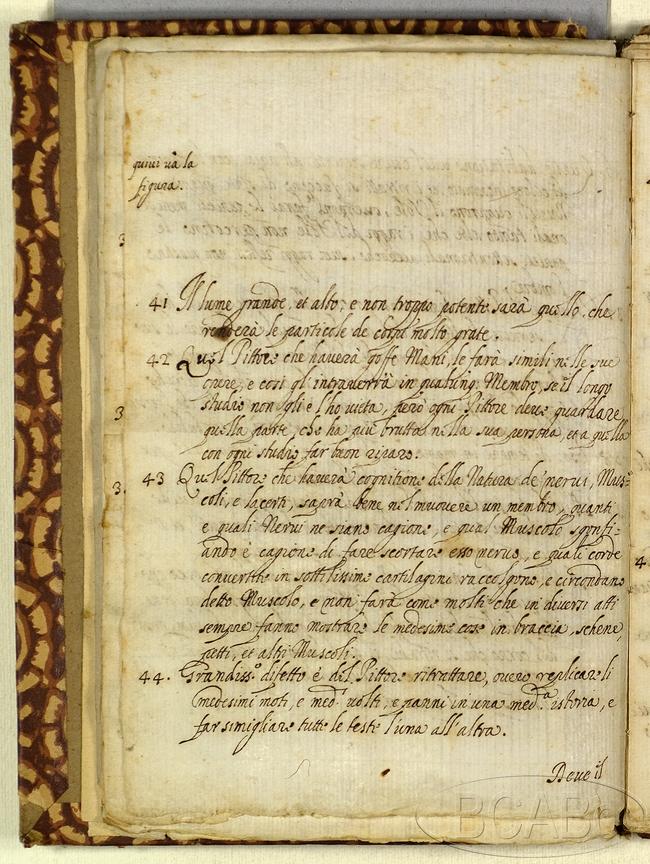 quiui uà la
figura.
3
41 Il lume grande, et alto, e non troppo potente sarà quello, che,
renderà le particole de corpi molto grate.
42 Quel Pittore che hauerà goffe Mani, le farà simili nelle sue
opere, e così gl'intrauerrà in qualunq. Membro, se il longo
studio non gli e l'ho uieta, però ogni Pittore deue guardare
3
quella parte, che ha più brutta nella sua persona, et a quella
con ogni studio far buon riparo.
43 Quel Pittore che hauerà cognitione della Natura de' nerui, Mus=
3.
coli, e lacerti, saprà bene nel muouere un membro, quanti
e quali Nerui ne siano cagione, e qual Muscolo sgonfi=
ando è cagione di fare scortare esso neruo, e quali corde
conuertite in sottilissime cartilagini raccolgono, e circondano
4.
detto Muscolo, e non farà come molti che in diuersi atti
sempre fanno mostrare le medesime cose in braccia, schene,
petti, et altri Muscoli.
44. Grandiss.º difetto è del Pittore ritrattare, ouero replicare li
medesimi moti, e med.i uolti, e panni in una med.a istoria, e
far simigliare tutte le teste l'una all'altra.
Deue il
BCABo